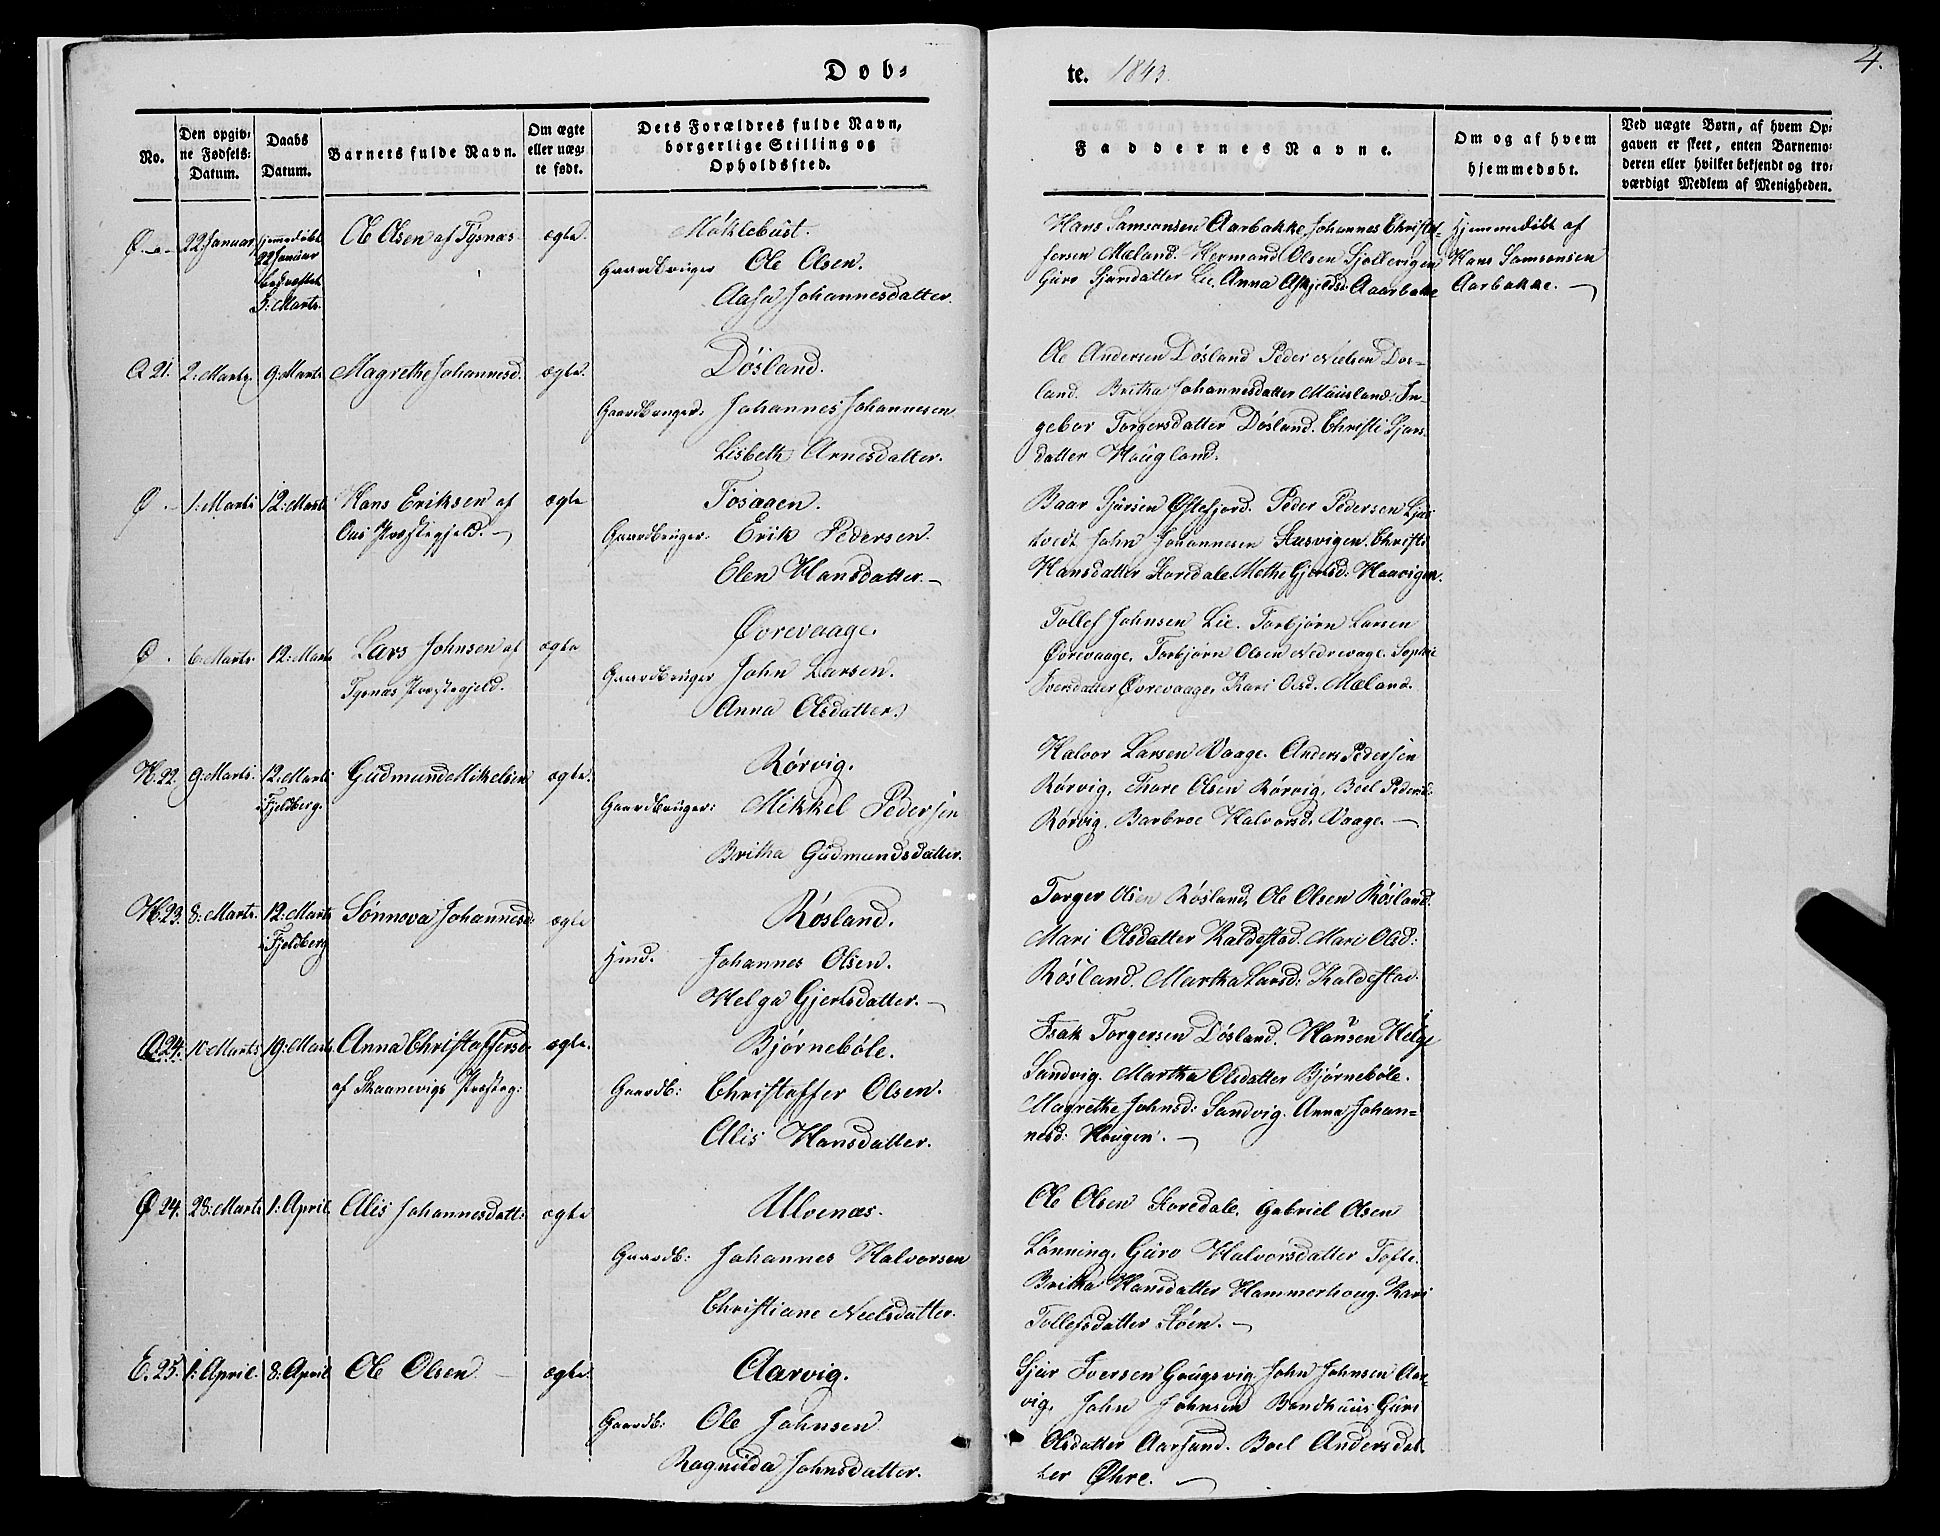 4.
Døb-
te. 1843.
No.
Den opgiv-
ne Fødsels-
Datum.
Daabs
Datum.
Barnets fulde Navn.
Om ægte
eller uæg-
te født.
Dets Forældres fulde Navn,
borgerlige Stilling og
Opholdssted.
Faddernes Navne.
Om og af hvem
hjemmedøbt.
Ved uægte Børn, af hvem Op-
gaven er skeet, enten Barnemo-
deren eller hvilket bekjendt og tro-
værdigt Medlem af Menigheden.
Ø. 22 Januar Hjemmedøbt
22 Januar
bekræftet
5. Marts.
Ole Olsen af Tysnæs ægte.
Møklebust.
Gaardbruger Ole Olsen.
Aasa Johannesdatter.
Hans Samsonsen Aarbakke Johannes Christof-
fersen Mæland. Hermand Olsen Sjollevigen
Guro Sjursdatter Lie. Anna Askjeldsd. Aaarbakke
Hjemmedøbt af
Hans Samsonsen
Aarbakke. —
21. 2: Marts. 9: Marts Magrethe Johannesd. ægte.
Døsland.
Gaardbruger. Johannes Johannesen
Lisbeth Arnesdatter.
Ole Andersen Døsland Peder Nielsen Døs-
land. Britha Johannesdatter Mäusland: In-
gebor Torgersdatter Døsland. Christi Sjurs-
datter Hougland.
Ø. 1: Marts 12: Marts Hans Eriksen af
Ous Præstegjeld. —
ægte
Tosagen.
Gaardbruger. Erik Pedersen.
Elen Hansdatter. —
Baar Sjursen Østefjord. Peder Pedersen
tvedt John Johannesen Husvigen. Christi
Hansdatter Storedale. Methe Gjertsd: Haavigen.
Ø. 6: Marts. 12: Marts Lars Johnsen af
Tysnæs Præstegjeld.
ægte
Øvrevaage.
Gaardbruger John Larsen.
Anna Olsdatter.
Tollef Johnsen Lie. Torbjørn Larsen
Øvrevaage. Torbjørn Olsen Nedrevage. Sophie
Iversdatter Øvrevaage. Kari Olsd. Mæland.
H. 22. 9: Marts. 12: Marts
i Fjeldberg.
Gudmund Mikelsen ægte.
Rørvig.
Gaardbruger: Mikkel Pedersen
Britha Gudmundsdatter.
Halvor Larsen Vaage. Anders Pedersen
Rørvig. Thore Olsen Rørvig. Boel Pedersd.
Rørvig. Barbroe Halvorsd. Vaage. —
H. 23. 8: Marts. 12: Marts
i Fjeldberg
Sønnova Johannesd. ægte
Røsland.
Huusmd. Johannes Olsen.
Helga Gjertsdatter. —
Torger Olsen Røsland. Ole Olsen Røsland.
Mari Olsdatter Kaldestad. Mari Olsd:
Røsland. Martha Larsd: Kaldestad.
24. 10 Marts 19: Marts Anna Christoffersd.
af Skaanevigs Præsteg:
ægte.
Bjørnebøle.
Gaardb: Christoffer Olsen.
Alis Hansdatter.
Isak Torgersen Døsland. Hansen Helge
Sandvig. Martha Olsdatter Bjørnebøle.
Magrethe Johnsd: Sandvig. Anna Johan-
nesd: Hougen. —
Ø 24. 28: Marts 1: April. Alis Johannesdatt: ægte
Ulvenæs.
Gaardb: Johannes Halvorsen
Christiane Neelsdatter.
Ole Olsen Storedale. Gabriel Olsen
Lønning. Guro Halvorsdatter Tofte.
Britha Hansdatter Hammerhoug. Kari
Tollefsdatter Støen. —
E. 25. 1: April. 8: April Ole Olsen — ægte.
Aarvig.
Gaardb: Ole Johnsen
Ragnilda Johnsdatter.
Sjur Iversen Gougsvig. John Johnsen Aar-
vig. John Johnsen Bondhuus Guri
Olsdatter Aarsund. Boel Andersdat-
ter Øhre. —